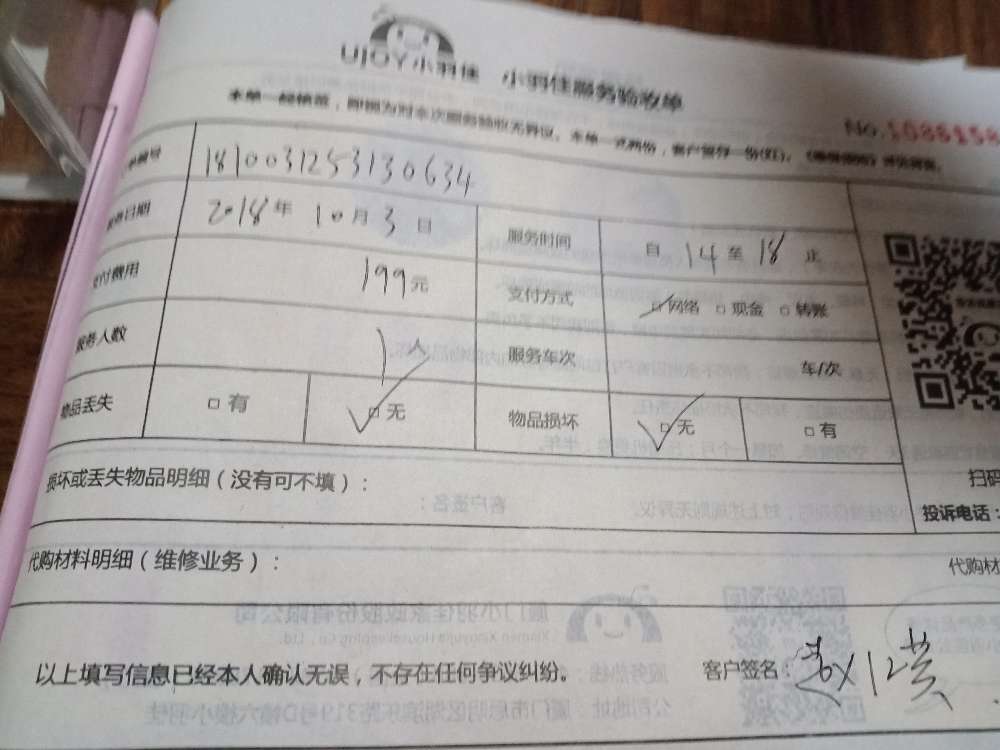 UJOY小羽佳 小羽佳服务验收单
本单一经销签,即视为对本次服务验收无异议。本单一式两份,客户留存一份(红)。
NO.
单编号 181003125313 0634
服务日期 2018年10月3日 服务时间 自14至18止
支付费用 199元 支付方式 □网络 □现金 □转账
服务人数 1人 服务车次 车/次
物品丢失 □有 □无 物品损坏 □无 □有
损坏或丢失物品明细(没有可不填):
扫码
投诉电话:
代购材料明细(维修业务): 代购材
以上填写信息已经本人确认无误,不存在任何争议纠纷。 客户签名: